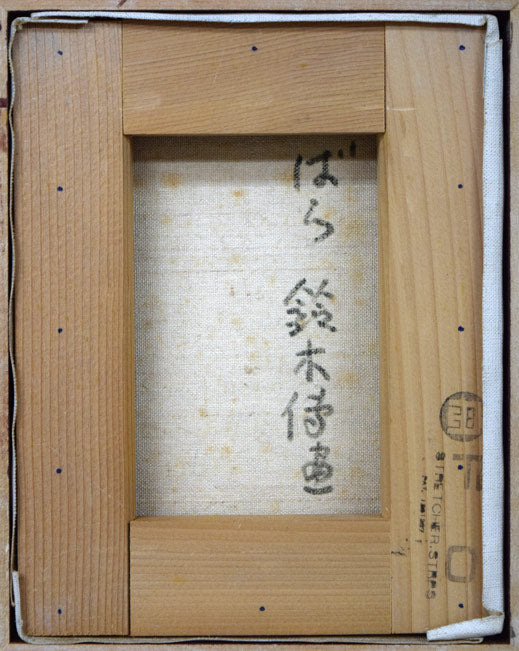 ばら 鈴木 画
F 0
STRETCHER STRIPS